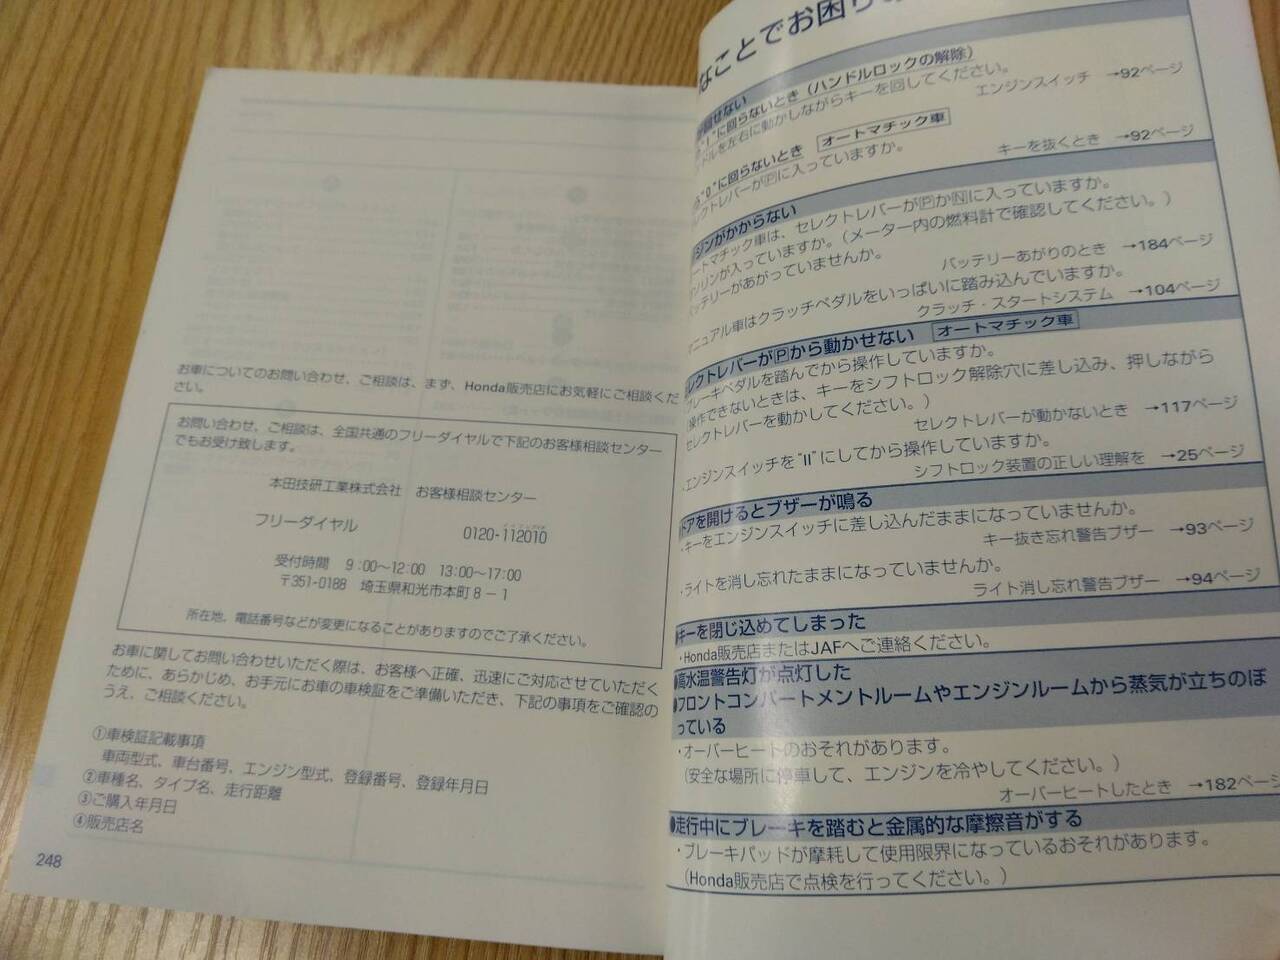 お車についてのお問い合わせ、ご相談は、まず、Honda販売店にお気軽にご相談くだ
さい。
お問い合わせ、ご相談は、全国共通のフリーダイヤルで下記のお客様相談センター
でもお受け致します。
本田技研工業株式会社 お客様相談センター
フリーダイヤル 0120-112010
受付時間 9:00〜12:00 13:00〜17:00
〒351-0188 埼玉県和光市本町8−1
所在地、電話番号などが変更になることがありますのでご了承ください。
お車に関してお問い合わせいただく際は、お客様へ正確、迅速にご対応させていただく
ために、あらかじめ、お手元にお車の車検証をご準備いただき、下記の事項をご確認の
うえ、ご相談ください。
①車検証記載事項
車両型式、車台番号、エンジン型式、登録番号、登録年月日
②車種名、タイプ名、走行距離
③ご購入年月日
④販売店名
248
なことでお困り
回せない
"Ⅰ"に回らないとき(ハンドルロックの解除)
ドルを左右に動かしながらキーを回してください。
エンジンスイッチ →92ページ
"0"に回らないとき オートマチック車
レクトレバーがPに入っていますか。
キーを抜くとき →92ページ
ジンがかからない
ートマチック車は、セレクトレバーがPかNに入っていますか。
ソリンが入っていますか。(メーター内の燃料計で確認してください。)
ッテリーがあがっていませんか。
バッテリーあがりのとき →184ページ
マニュアル車はクラッチペダルをいっぱいに踏み込んでいますか。
クラッチ・スタートシステム →104ページ
レクトレバーがPから動かせない オートマチック車
ブレーキペダルを踏んでから操作していますか。
(操作できないときは、キーをシフトロック解除穴に差し込み、押しながら
セレクトレバーを動かしてください。)
セレクトレバーが動かないとき →117ページ
・エンジンスイッチを"Ⅱ"にしてから操作していますか。
シフトロック装置の正しい理解を →25ページ
ドアを開けるとブザーが鳴る
・キーをエンジンスイッチに差し込んだままになっていませんか。
キー抜き忘れ警告ブザー →93ページ
・ライトを消し忘れたままになっていませんか。
ライト消し忘れ警告ブザー →94ページ
●キーを閉じ込めてしまった
・Honda販売店またはJAFへご連絡ください。
●高水温警告灯が点灯した
●フロントコンパートメントルームやエンジンルームから蒸気が立ちのぼ
っている
・オーバーヒートのおそれがあります。
(安全な場所に停車して、エンジンを冷やしてください。)
オーバーヒートしたとき →182ページ
●走行中にブレーキを踏むと金属的な摩擦音がする
・ブレーキパッドが摩耗して使用限界になっているおそれがあります。
(Honda販売店で点検を行ってください。)